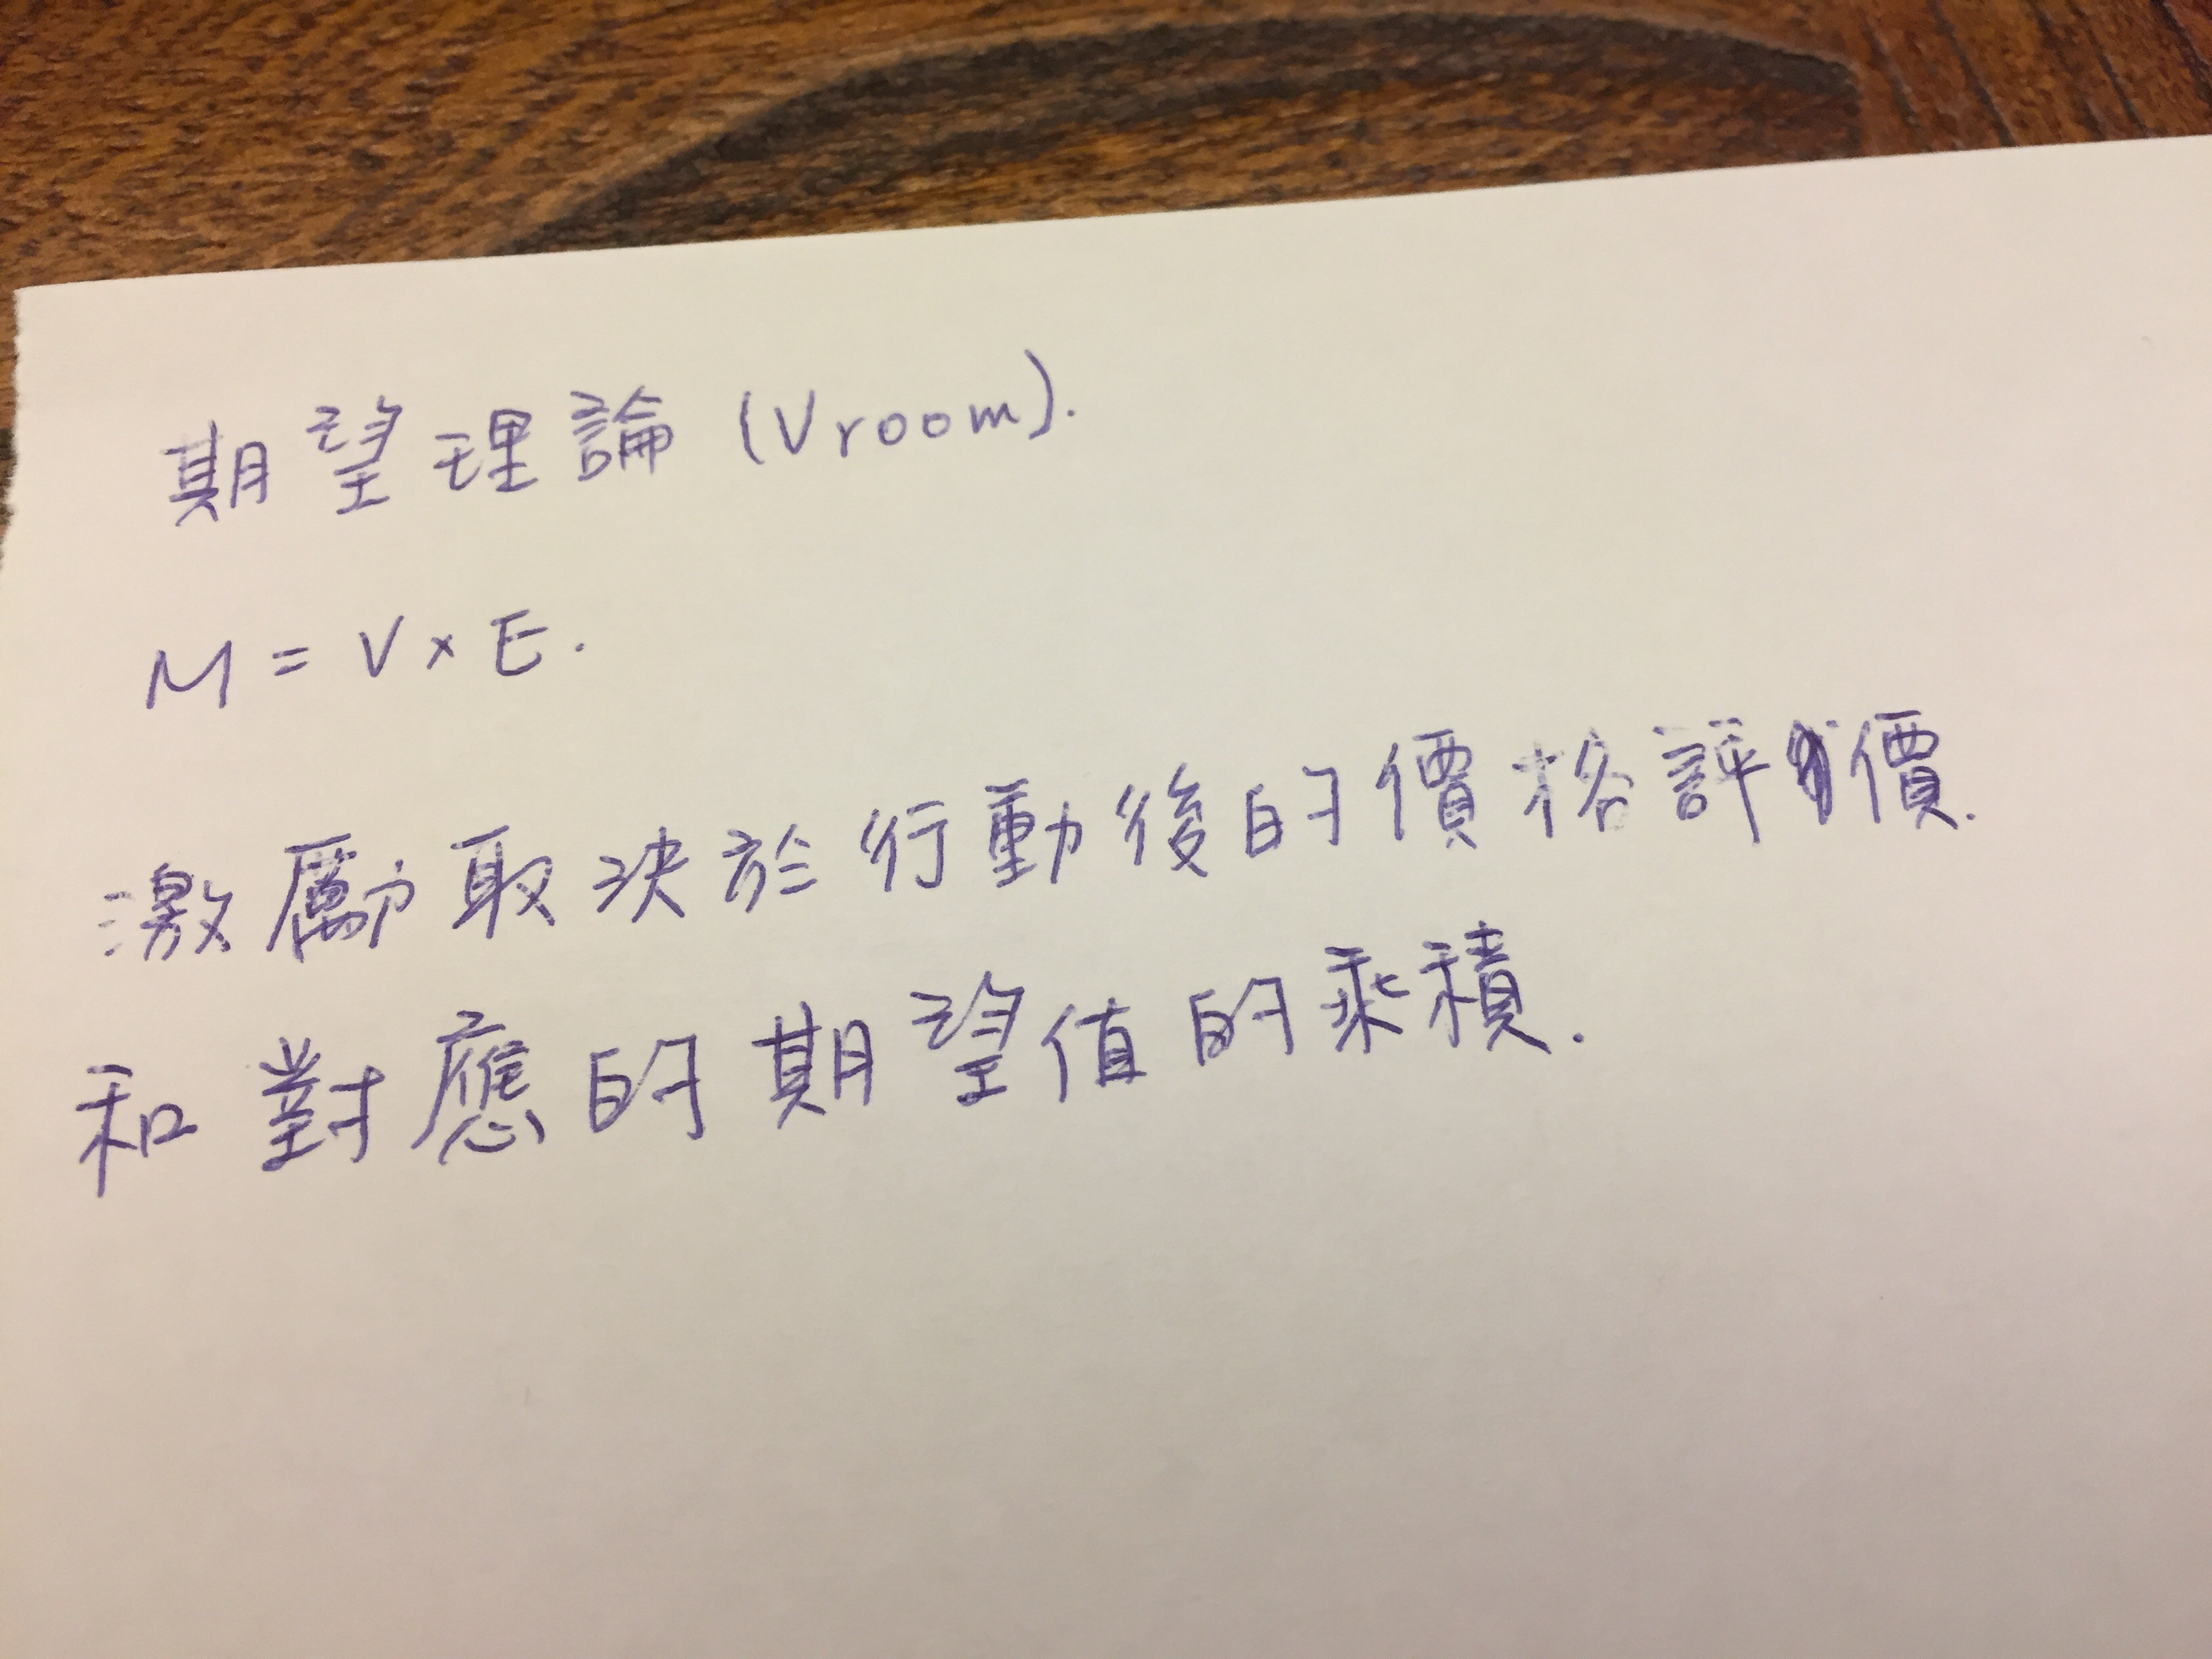 期望理論 (Vroom).
M = V × E.
激勵取決於行動後的價格評價.
和對應的期望值的乘積.